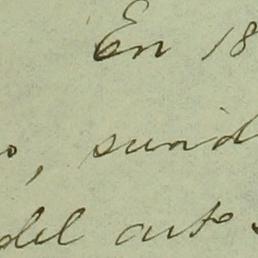 En 18
o, suid
del arto